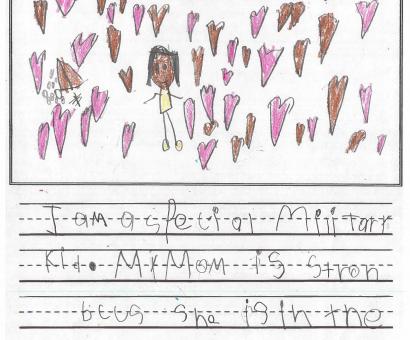 I am a speciol Miiitary
Kid. My Mom is stron
becus she is in the